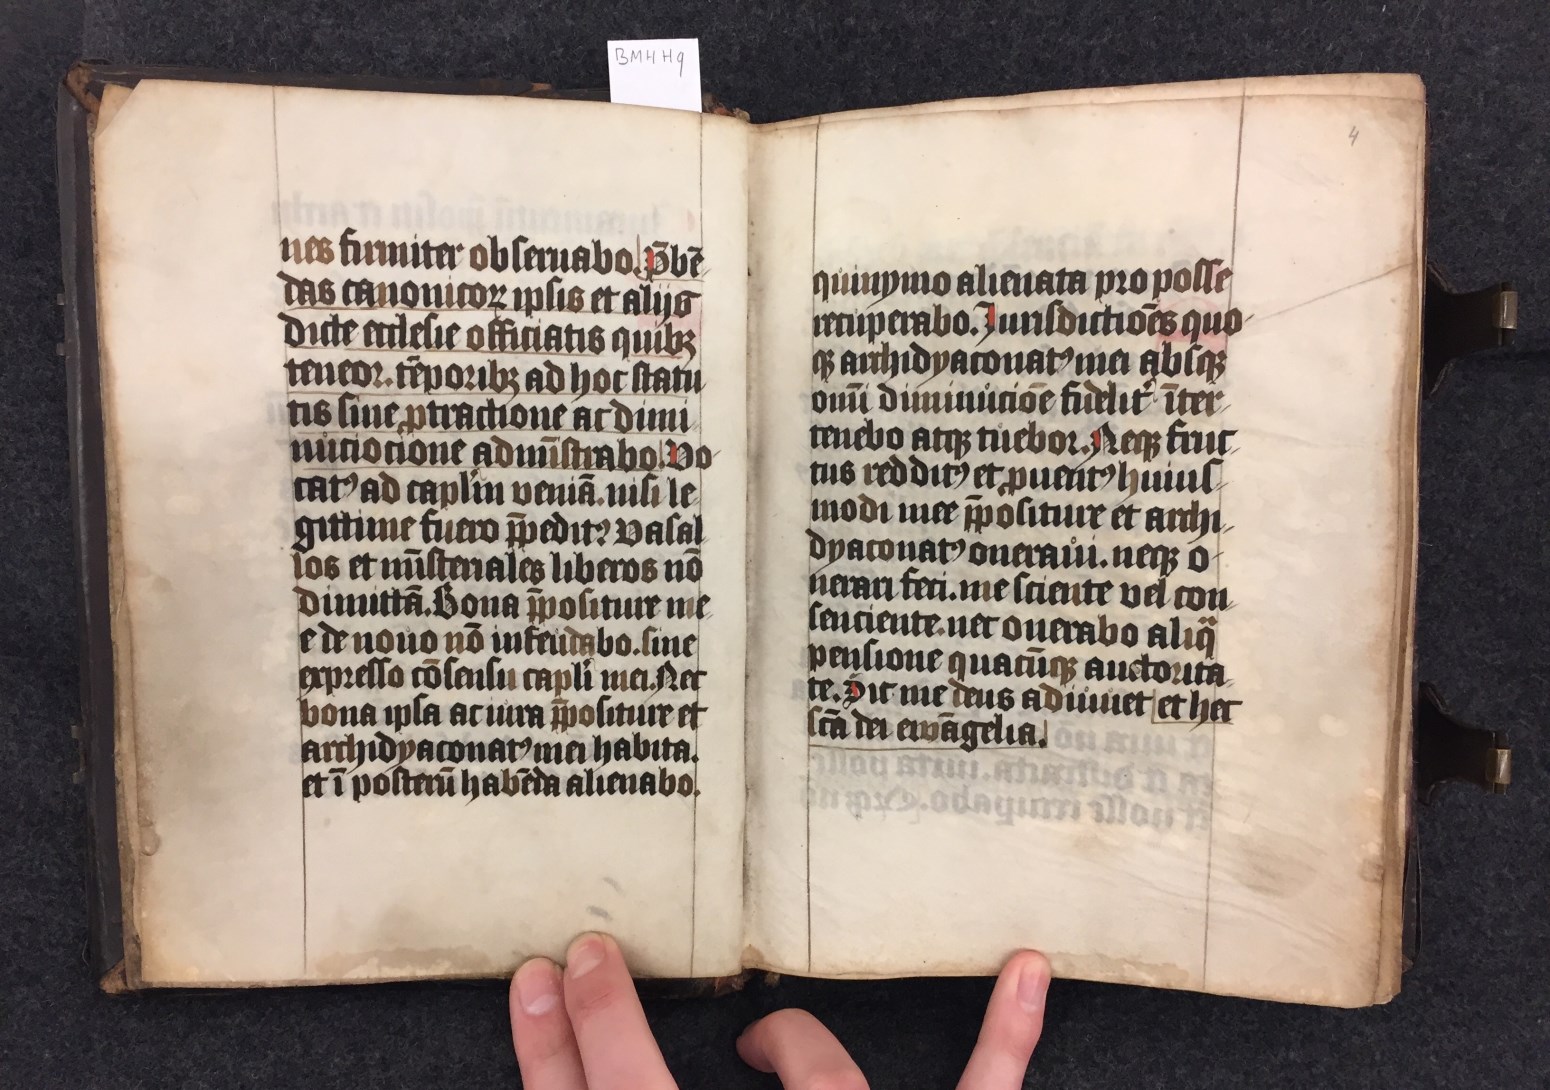 BMHH9
nes firmiter obseruabo. P̄bē
das canonicoꝝ ipsis et alijs
dicte ecclesie officiatis quibꝫ
teneor. tēporibꝫ ad hoc statu
tis sine ꝓtractione ac dimi
nuciocione admīstrabo. Vo
catꝰ ad caplm̄ veniā. nisi le
gittime fuero p̄peditꝰ Vasal
los et mīsteriales liberos nō
dimittā. Bona p̄positure me
e de nouo nō infeudabo. sine
expresso cōsensu capli̅ mei. Nec
bona ipsa ac iura p̄positure et
archidyaconatꝰ mei habita.
et ī posterū habēda alienabo.
4
quinymo alienata pro posse
recuperabo. Iurisdictiōes quo
qꝫ archidyaconatꝰ mei absqꝫ
omī diminuciōe fidelit̾ īter
tenebo atqꝫ tuebor. Neqꝫ fruc
tus redditꝰ et ꝓuentꝰ huius
modi mee p̄positure et archi
dyaconatꝰ oneraui. neqꝫ o
nerari feci. me sciente vel con
senciente. nec onerabo aliq̄
pensione quacūqꝫ auctorita
te. Sic me deus adiuuet et hec
scā dei ewāgelia.